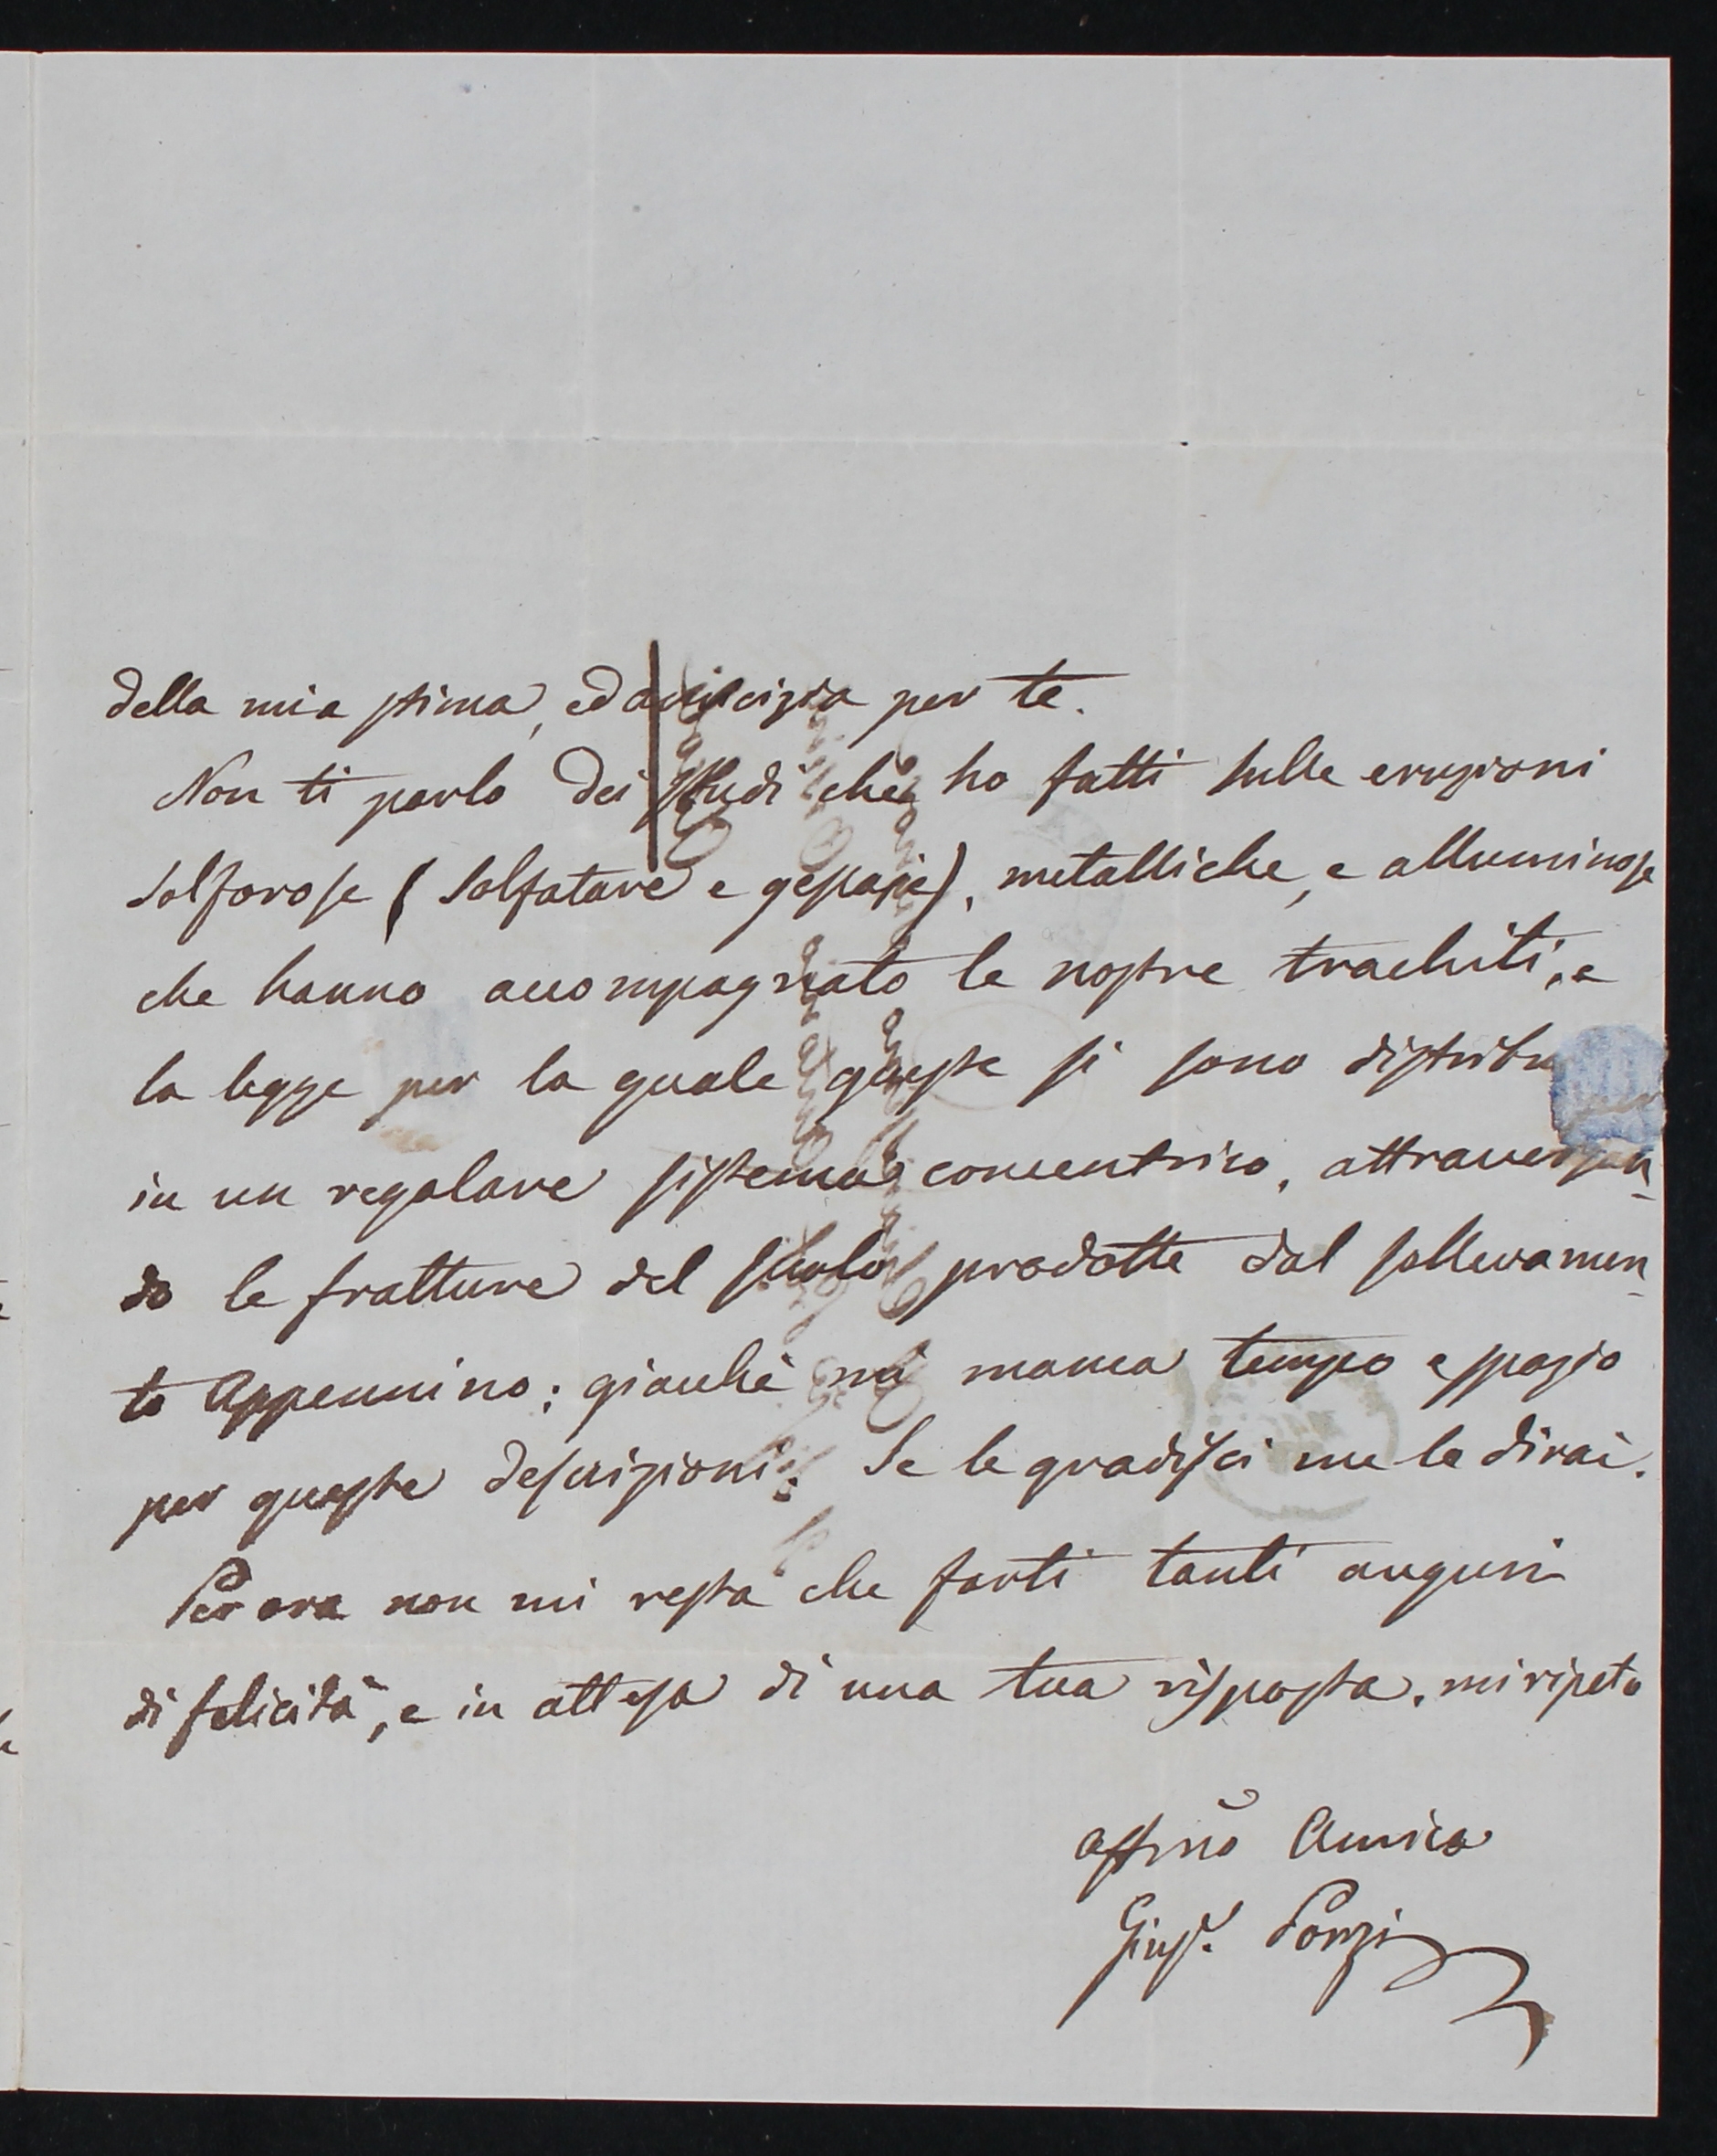 della mia stima, ed amicizia per te.
Non ti parlo dei studi che ho fatti sulle eruzioni
solforose (solfatare e gessaje), metalliche, e alluminose
che hanno accompagnato le nostre trachiti, e
la legge per la quale queste si sono distribu
in un regolare sistema concentrico, attraversan-
do le fratture del suolo prodotte dal sollevamen-
to Appennino; giacchè mi manca tempo e spazio
per queste descrizioni. Se le gradisci me le dirai.
Per ora non mi resta che farti tanti auguri
di felicità, e in attesa di una tua risposta, mi ripeto
Affmo Amico
Gius. Ponzi